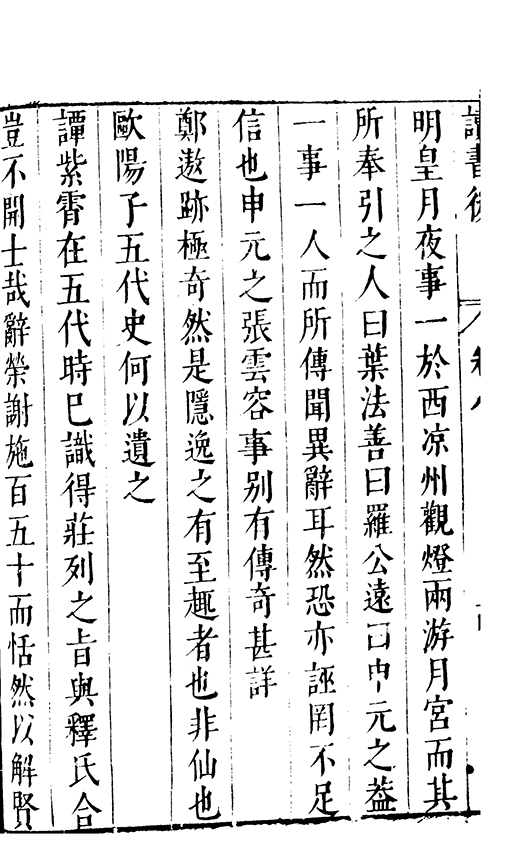 讀書後 卷八
明皇月夜事一於西凉州觀燈兩游月宮而其
所奉引之人曰葉法善曰羅公遠曰申元之葢
一事一人而所傳聞異辭耳然恐亦誣罔不足
信也申元之張雲容事别有傳奇甚詳
鄭遨跡極奇然是隱逸之有至趣者也非仙也
歐陽子五代史何以遺之
譚紫霄在五代時巳識得莊列之旨與釋氏合
豈不開士哉辭榮謝施百五十而恬然以解賢